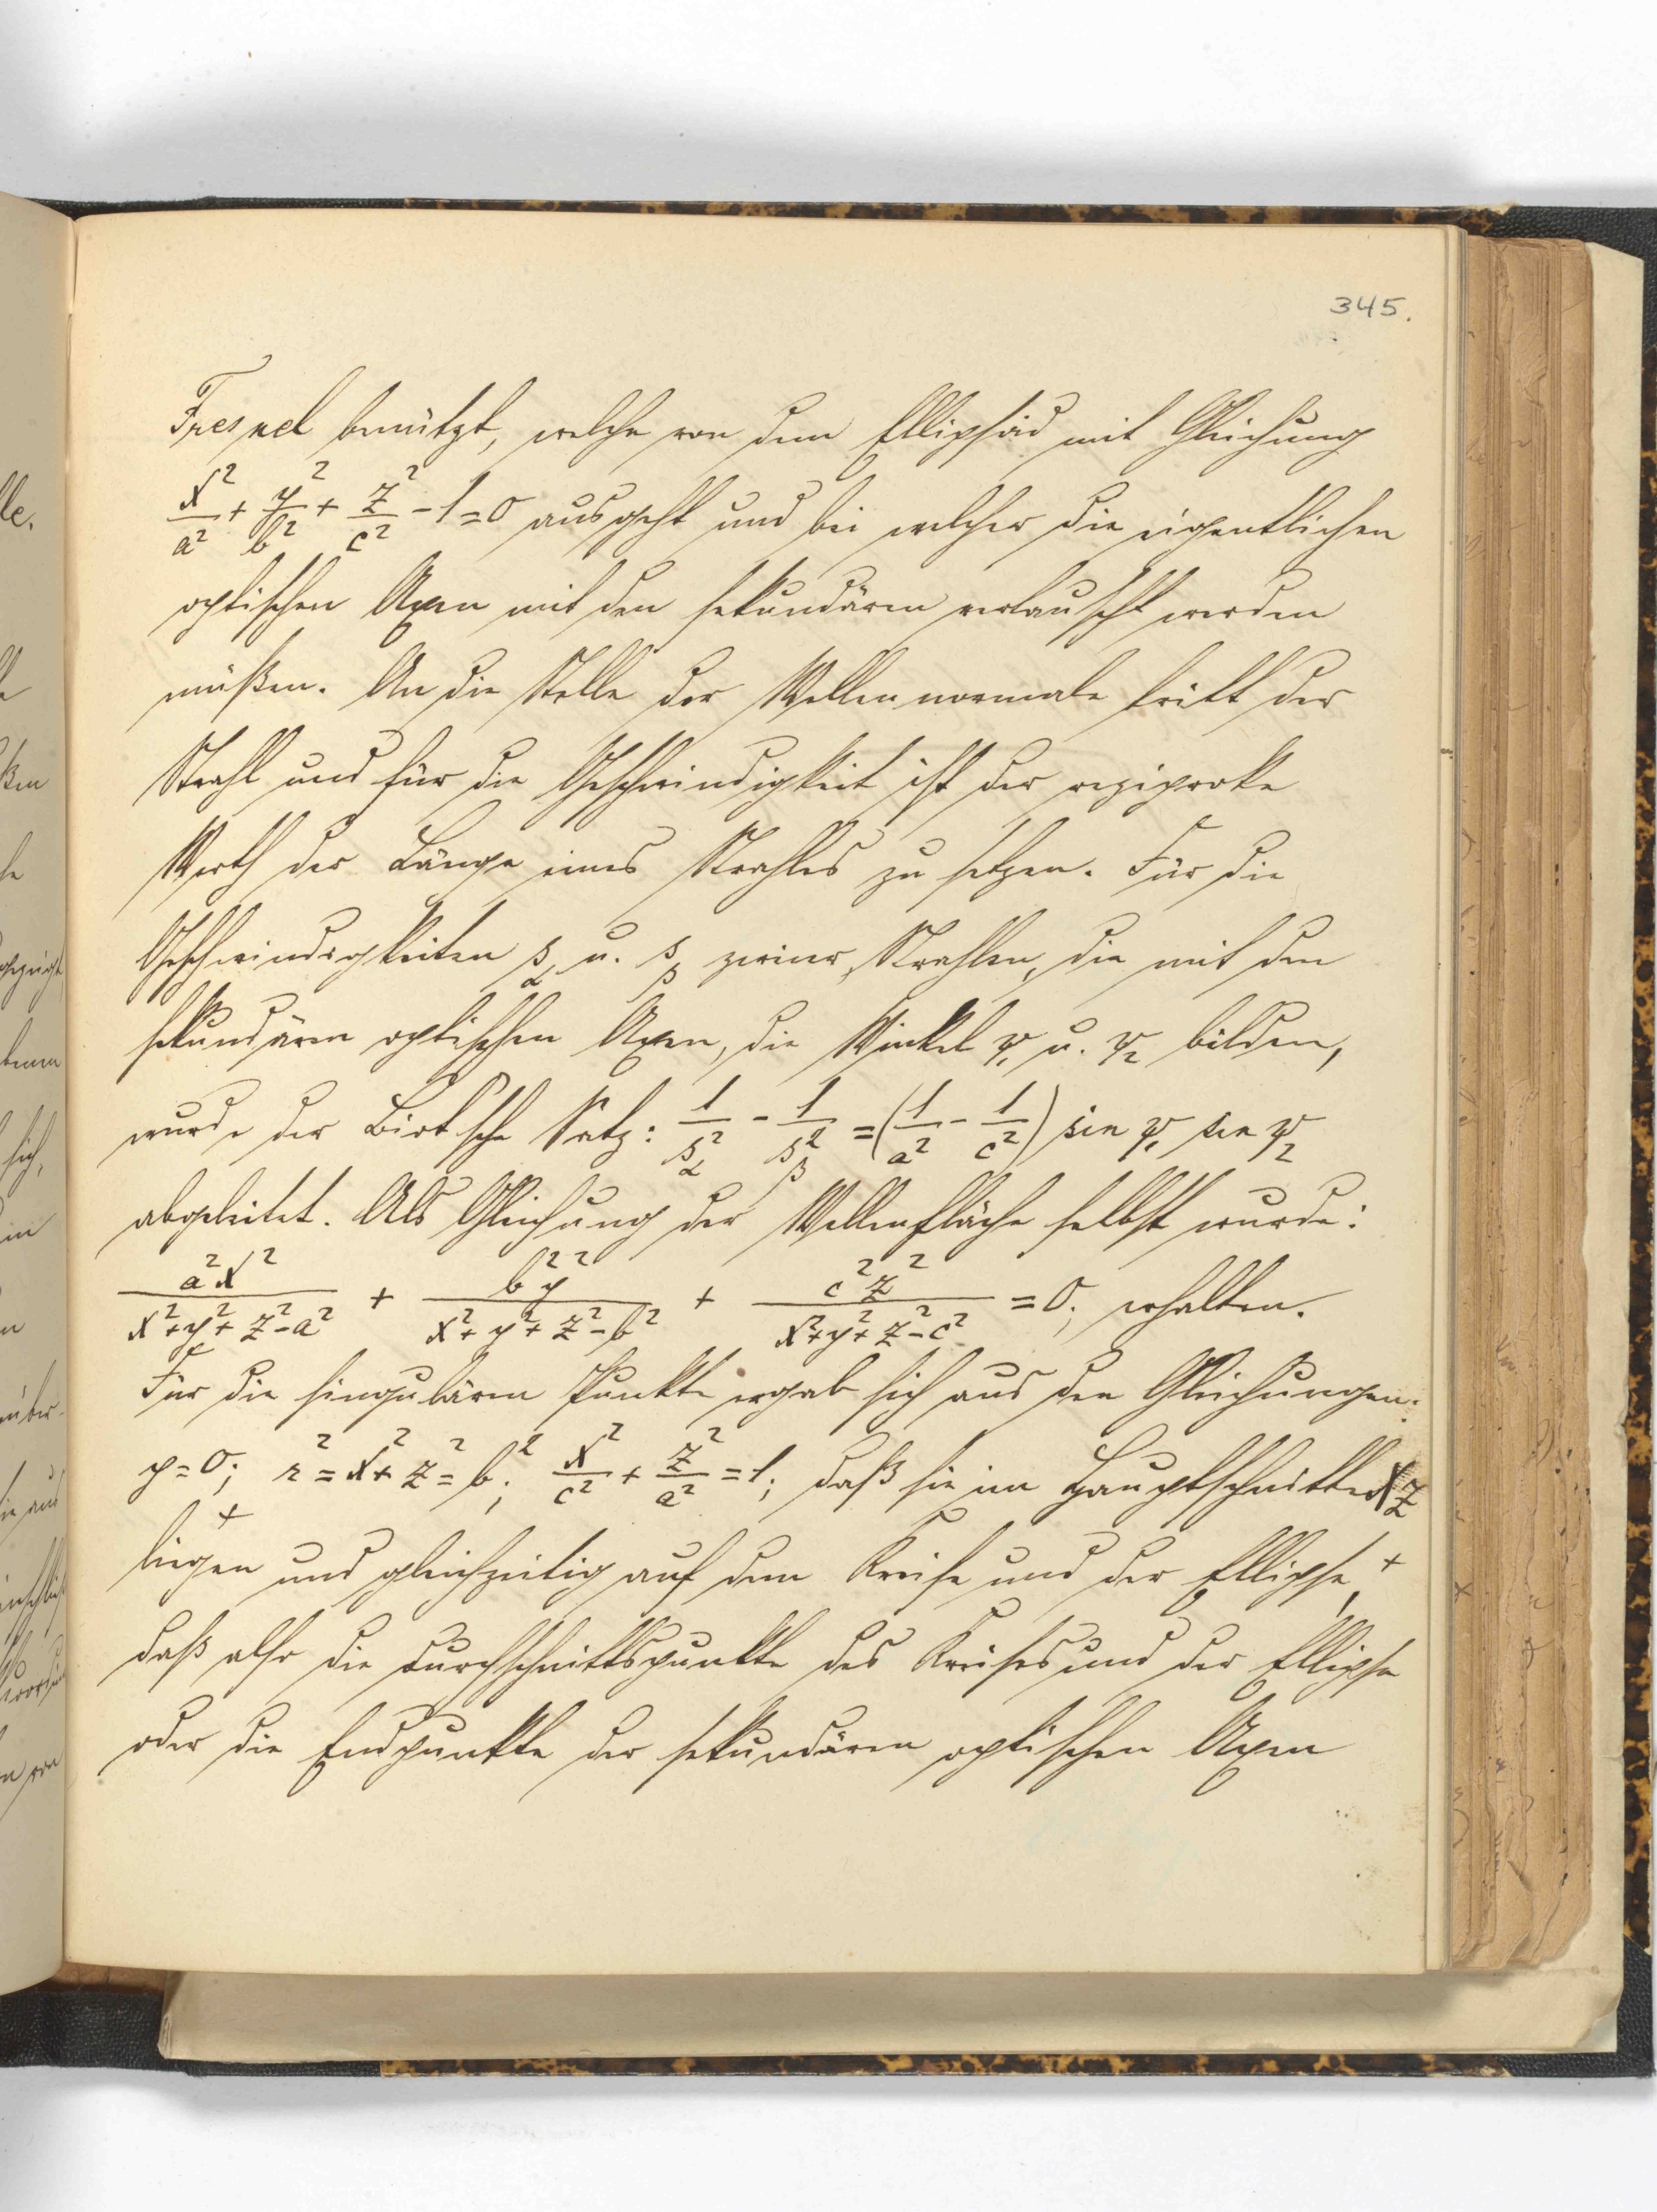 345.
Fresnel benützt, welche von dem Ellipsoid mit Gleichung
x²/a² + y²/b² + z²/c² - 1 = 0 ausgeht und bei welcher die eigentlichen
optischen Axen mit den sekundären vertauscht werden
müßen. An die Stelle der Wellennormale tritt der
Strahl und für die Geschwindigkeit ist der reziproke
Werth der Länge eines Strahles zu setzen. Für die
Geschwindigkeiten s_α u. s_β zweier Strahlen, die mit den
sekundären optischen Axen, die Winkel ψ₁ u. ψ₂ bilden,
wurde der Biot'sche Satz: 1/s_α² - 1/s_β² = (1/a² - 1/c²) sin ψ₁ sin ψ₂
abgeleitet. Als Gleichung der Wellenfläche selbst wurde:
a²x²/(x²+y²+z²-a²) + b²y²/(x²+y²+z²-b²) + c²z²/(x²+y²+z²-c²) = 0; erhalten.
Für die singulären Punkte ergab sich aus den Gleichungen:
y=0; r²=x²+z²=b²; x²/c² + z²/a² = 1; daß sie im Hauptschnitte XZ
liegen und gleichzeitig auf dem Kreise und der Ellipse,
daß also die Durchschnittspunkte des Kreises und der Ellipse
oder die Endpunkte der sekundären optischen Axen